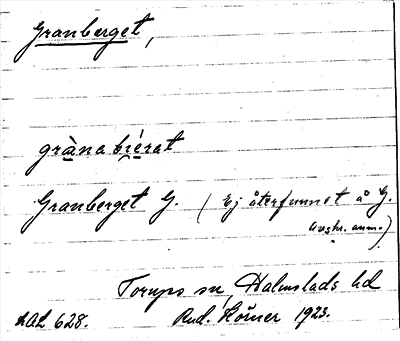 Granberget,
gràna biérat
Granberget G. (Ej återfunnet å G.
Avskr. anm.)
Torups sn, Halmslads hd
LAL 628. Rud. Körner 1923.